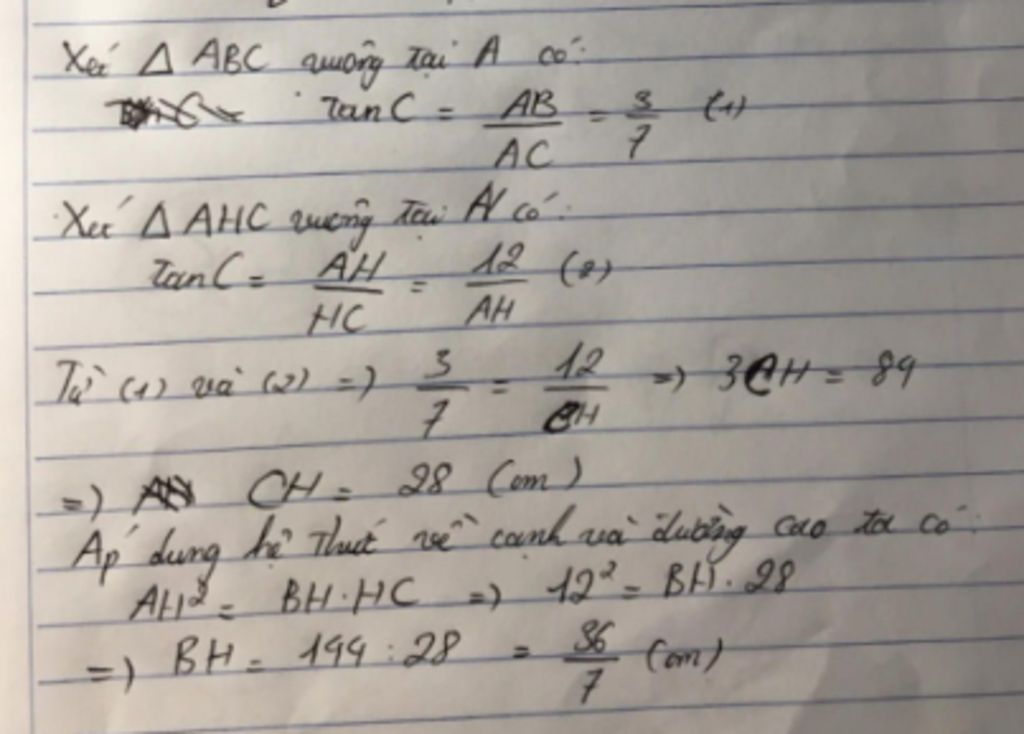 Xét Δ ABC vuông tại A có:
tan C = AB/AC = 3/7 (1)
Xét Δ AHC vuông tại H có:
tan C = AH/HC = 12/AH (2)
Từ (1) và (2) => 3/7 = 12/CH => 3CH = 84
=> CH = 28 (cm)
Áp dụng hệ thức về cạnh và đường cao ta có:
AH² = BH.HC => 12² = BH.28
=> BH = 144 : 28 = 36/7 (cm)